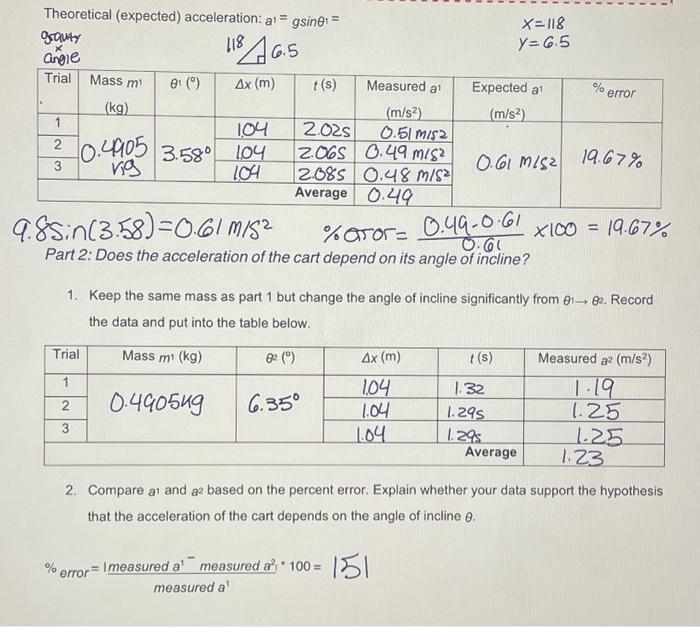 Theoretical (expected) acceleration: a¹ = gsinθ¹ =
x=118
gravity
118 6.5
y=6.5
x
angle
Trial Mass m¹ (kg) θ¹ (°) Δx (m) t (s) Measured a¹ (m/s²) Expected a¹ (m/s²) % error
1 1.04 2.02s 0.51 m/s2
2 0.4905 kg 3.58° 1.04 2.06s 0.49 m/s² 0.61 m/s2 19.67%
3 1.04 2.08s 0.48 m/s²
Average 0.49
9.8sin(3.58)=0.61 m/s² % error = 0.49-0.61 / 0.61 x100 = 19.67%
Part 2: Does the acceleration of the cart depend on its angle of incline?
1. Keep the same mass as part 1 but change the angle of incline significantly from θ¹→ θ². Record
the data and put into the table below.
Trial Mass m¹ (kg) θ² (°) Δx (m) t (s) Measured a² (m/s²)
1 1.04 1.32 1.19
2 0.4905kg 6.35° 1.04 1.29s 1.25
3 1.04 1.29s 1.25
Average 1.23
2. Compare a¹ and a² based on the percent error. Explain whether your data support the hypothesis
that the acceleration of the cart depends on the angle of incline θ.
% error = |measured a¹ - measured a²| * 100 = 151
measured a¹